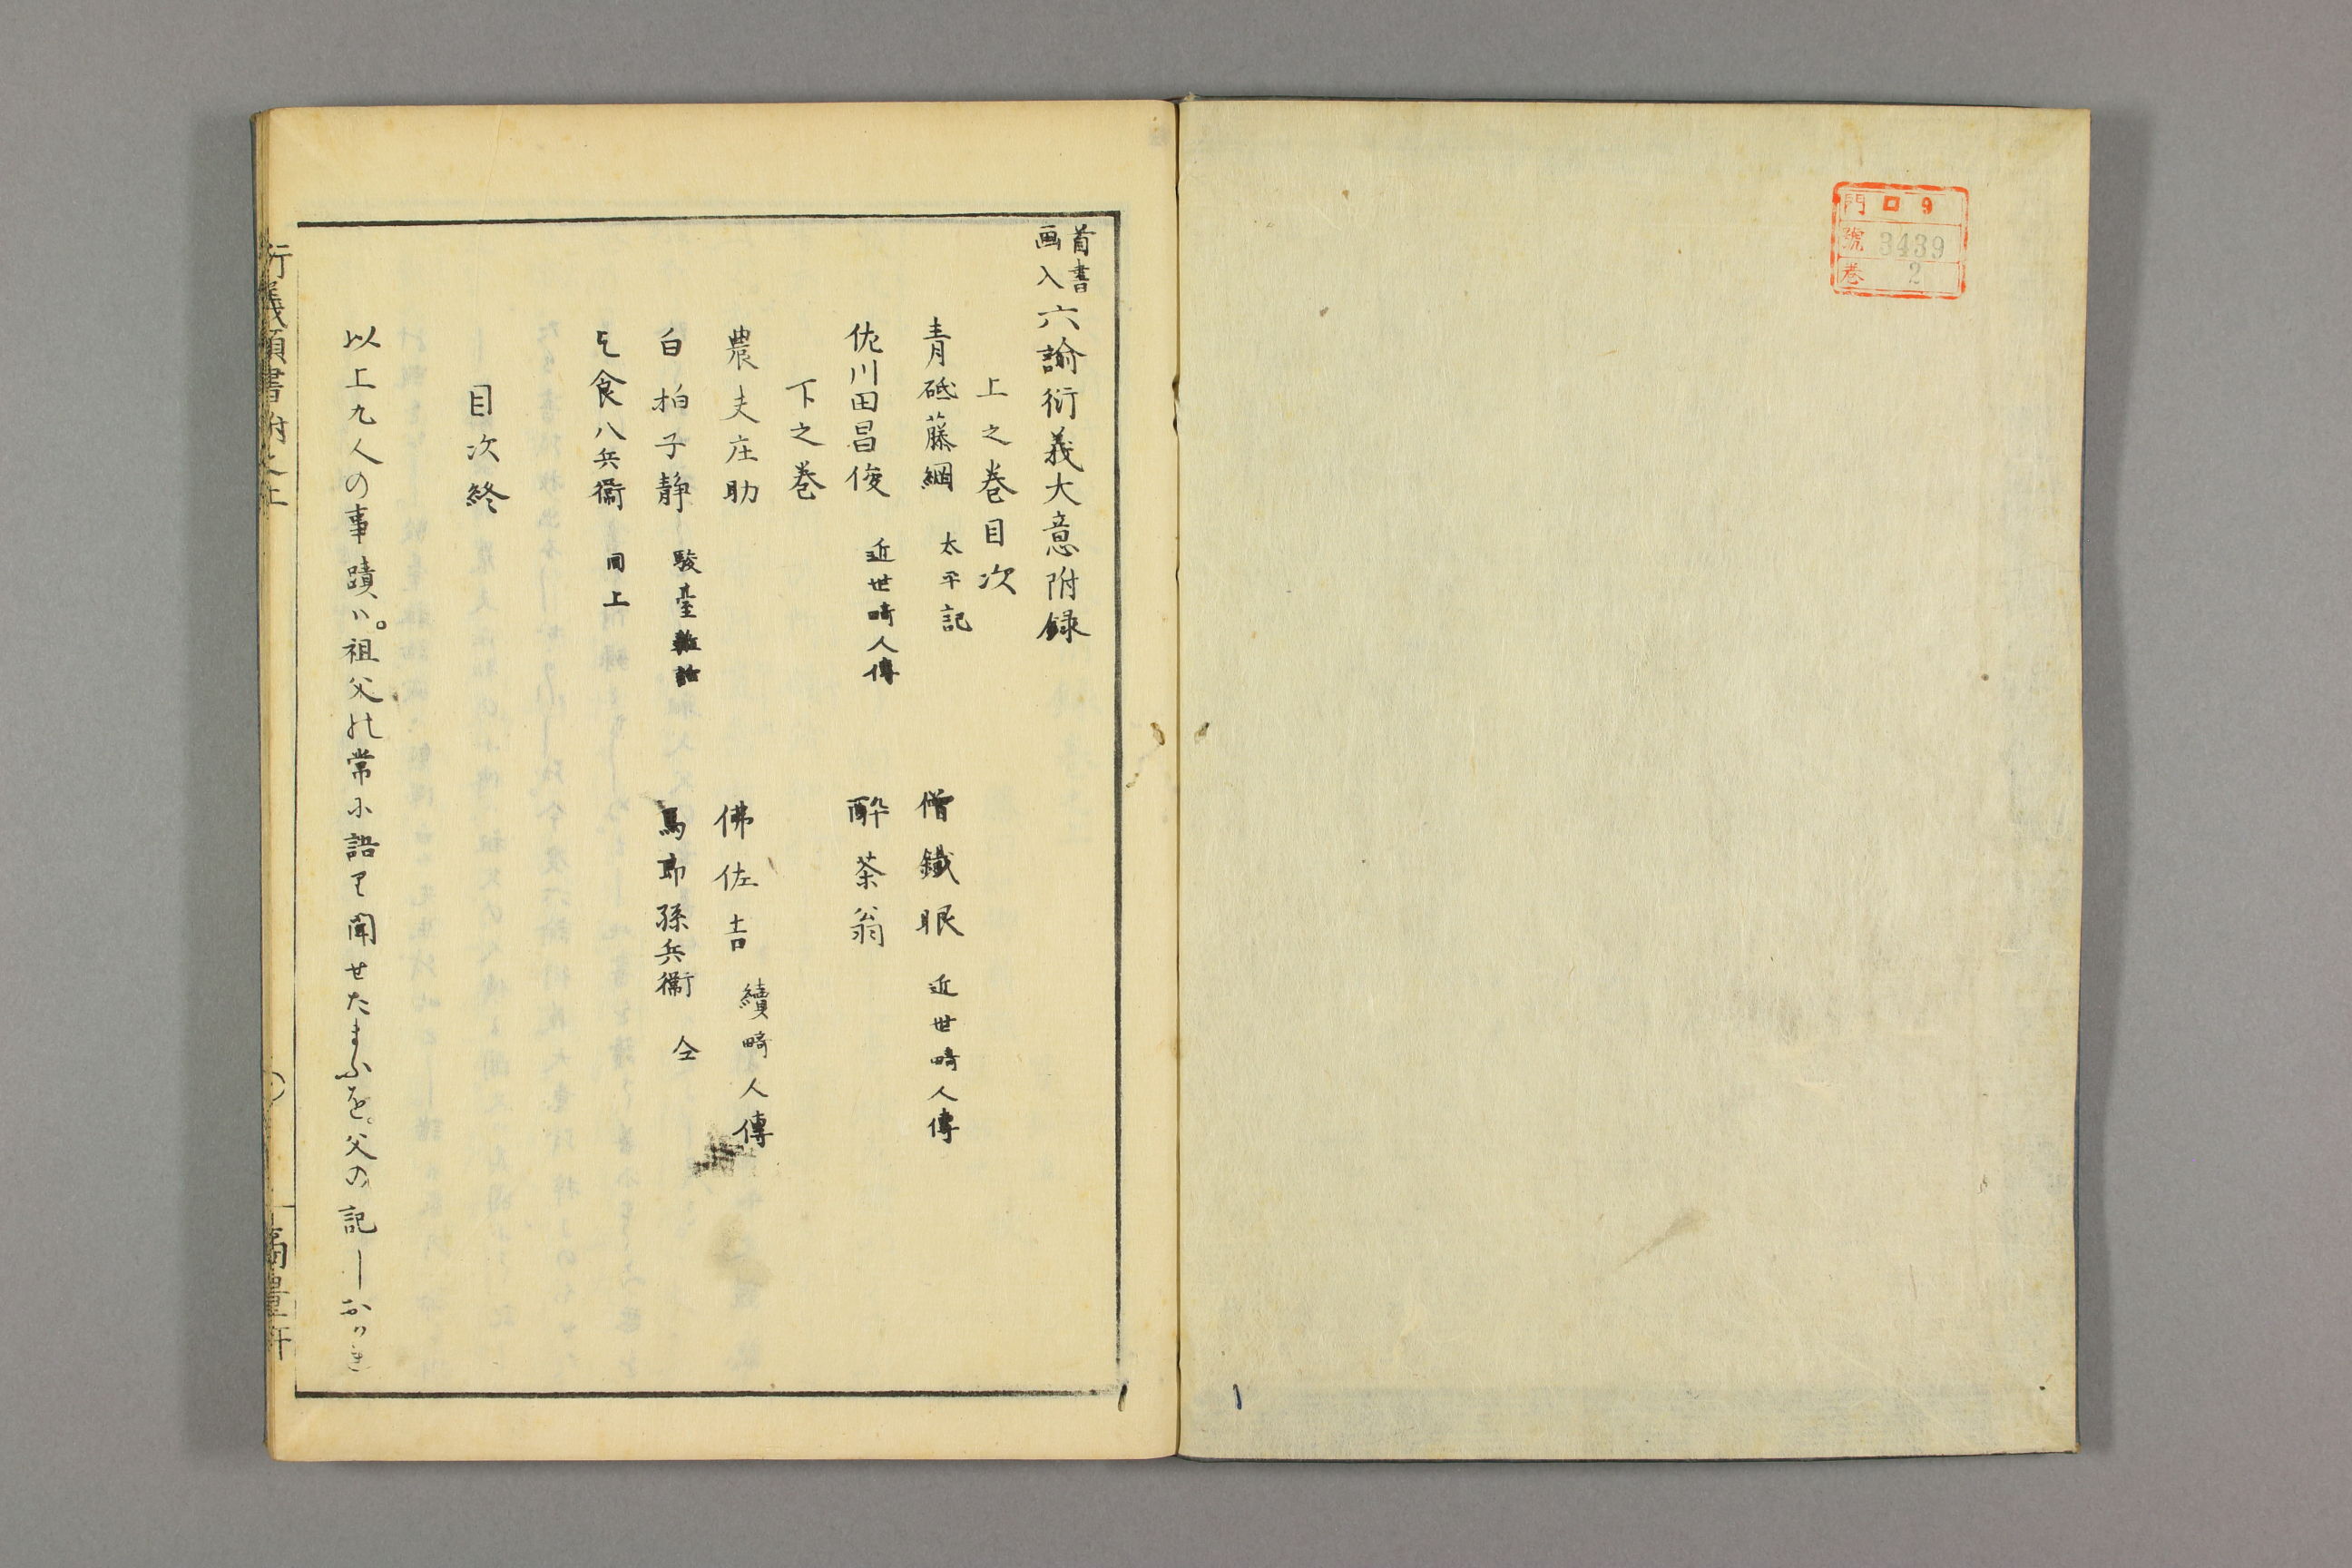 門 口 9
號 3439
巻 2
首書
画入
六諭衍義大意附録
上之巻目次
青砥藤綱 太平記
僧鐵眼 近世畸人傳
佐川田昌俊 近世畸人傳
酔茶翁
下之巻
農夫庄助
佛佐吉 續畸人傳
白拍子静 駿臺雜話
馬郎孫兵衞 仝
乞食八兵衞 同上
目次終
以上九人の事蹟ハ。祖父の常に語り聞せたまふを。父の記しおけき
衍義頭書附之上